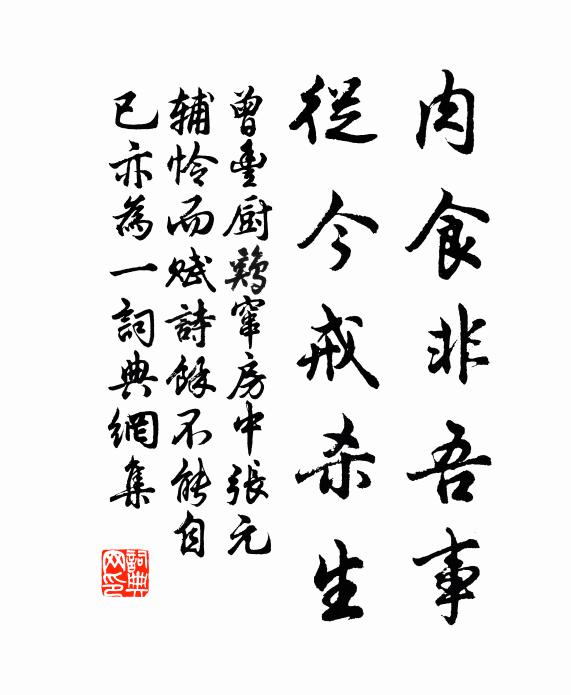 肉食非吾事
從今戒杀生
曾豊厨鷄窜房中張元
辅怜而赋詩餘不能自
已亦為一詞典網集
詞典网印